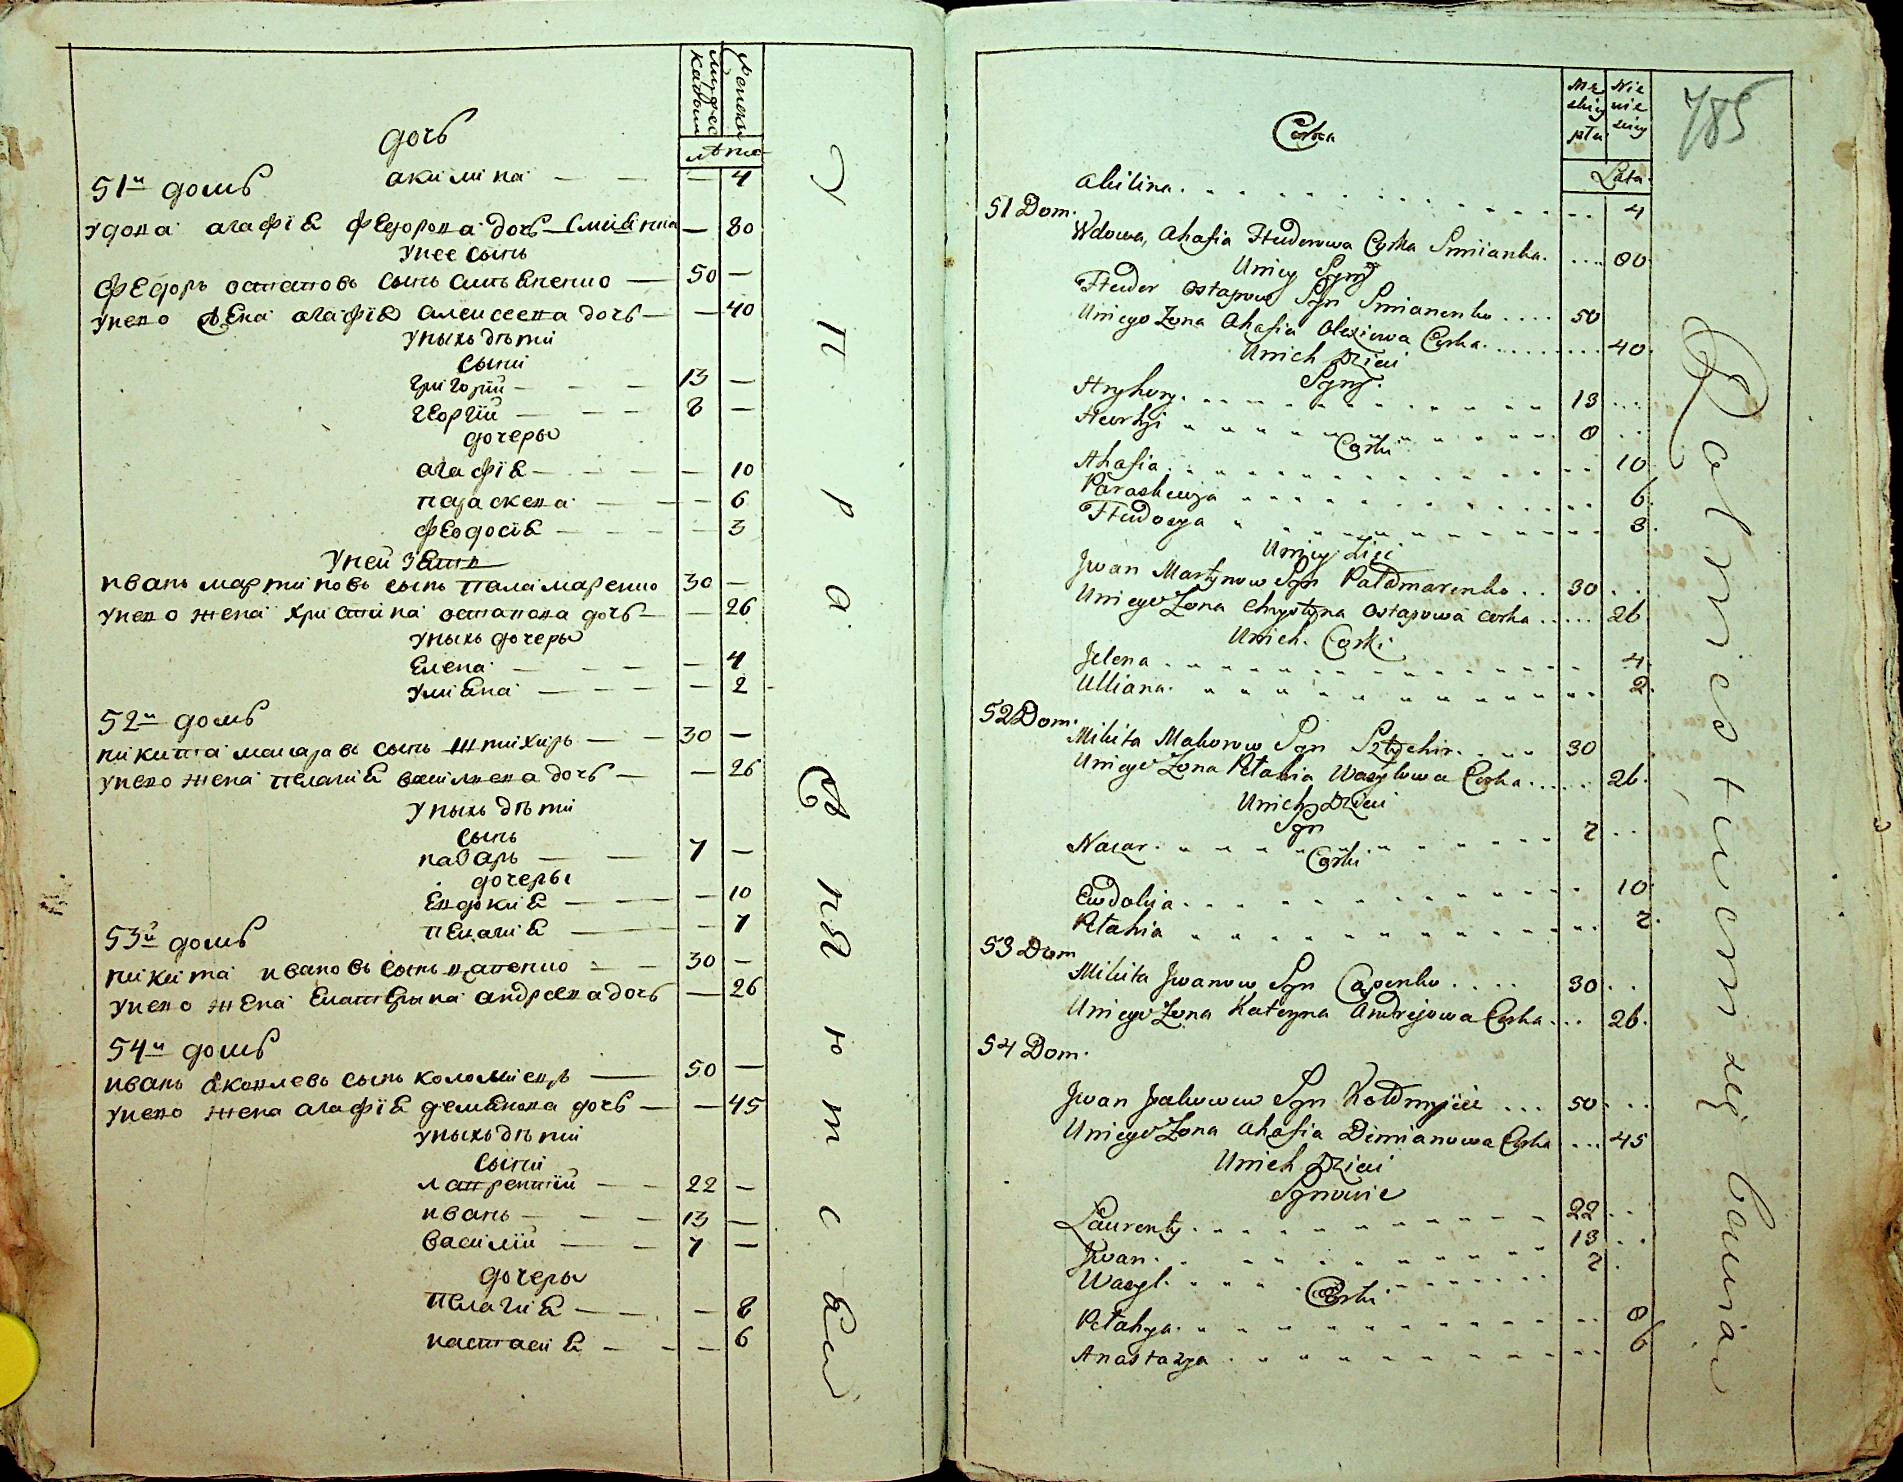 дочь
лета
акилина — — — 4
51й домъ
удова агафіѧ федорова дочь — 80
унее сынъ
федоръ остаповъ сынъ — 50 —
унево жена агафіѧ алексеева дочь — — 40
уныхъ дѣти
сыни
григорій — — — 13 —
георгій — — — 8 —
дочеры
агафіѧ — — — 10
параскева — — — 6
феодосіѧ — — — 3
уней зѧть
иванъ мартиновъ сынъ паламаренко 30 —
унево жена христина остапова дочь — — 26
уныхъ дочеры
елена — — — 4
улиѧна — — — — 2
52й домъ
никита макаровъ сынъ штихиръ — — 30 —
унево жена пелагиѧ василиева дочь — — 26
уныхъ дѣти
сынъ
назаръ — — 7 —
дочеры
евдокиѧ — — — 10
пелагиѧ — — 7
53й домъ
никита ивановъ сынъ цапенко — — 30 —
унево жена екатерина андреева дочь — 26
54й домъ
иванъ ѧковлевъ сынъ коломиецъ — 50 —
унево жена агафіѧ демѧнова дочь — — 45
уныхъ дѣти
сыни
лаврентій — — 22 —
иванъ — — — 13 —
василій — — 7 —
дочеры
пелагиѧ — — — 8
настасиѧ — — — 6
785
Corka
Lata
Akilina 4
51 Dom.
Wdowa, Ahafia Hudorowa Corka Smianka. 80
Uniey Syny
Hudor Ostapow Syn Smianenko .... 50
Uniego Zona Ahafia Olexiewa Corka. 40.
Unich Dzieci
Syny.
Hryhory. 13
Heorhji 8
Corki
Ahafia. 10
Paraskewja 6.
Hudosya 3.
Uniey Zięć
Jwan Martynow Syn Palamarenko .. 30
Uniego Zona Chrystyna Ostapowa Corka ..... 26
Unich. Corki
Jelena 4.
Ulliana. 2.
52 Dom.
Mikita Makarow Syn Sztychir. 30
Uniego Zona Pelahia Wasylowa Corka. 26.
Unich Dzieci
Syn
Nazar. 7
Corki
Ewdokija. 10.
Pelahia 7.
53 Dom
Mikita Jwanow Syn Capenko .... 30
Uniego Zona Kateryna Andrejowa Corka ... 26.
54 Dom.
Jwan Jakowow Syn Kołomyiec ... 50
Uniego Zona Ahafia Dimianowa Corka ... 45
Unich Dzieci
Synowie
Laurenty 22
Jwan. 13
Wasyl. 7
Corki
Pelahya. 8
Anastazya 6